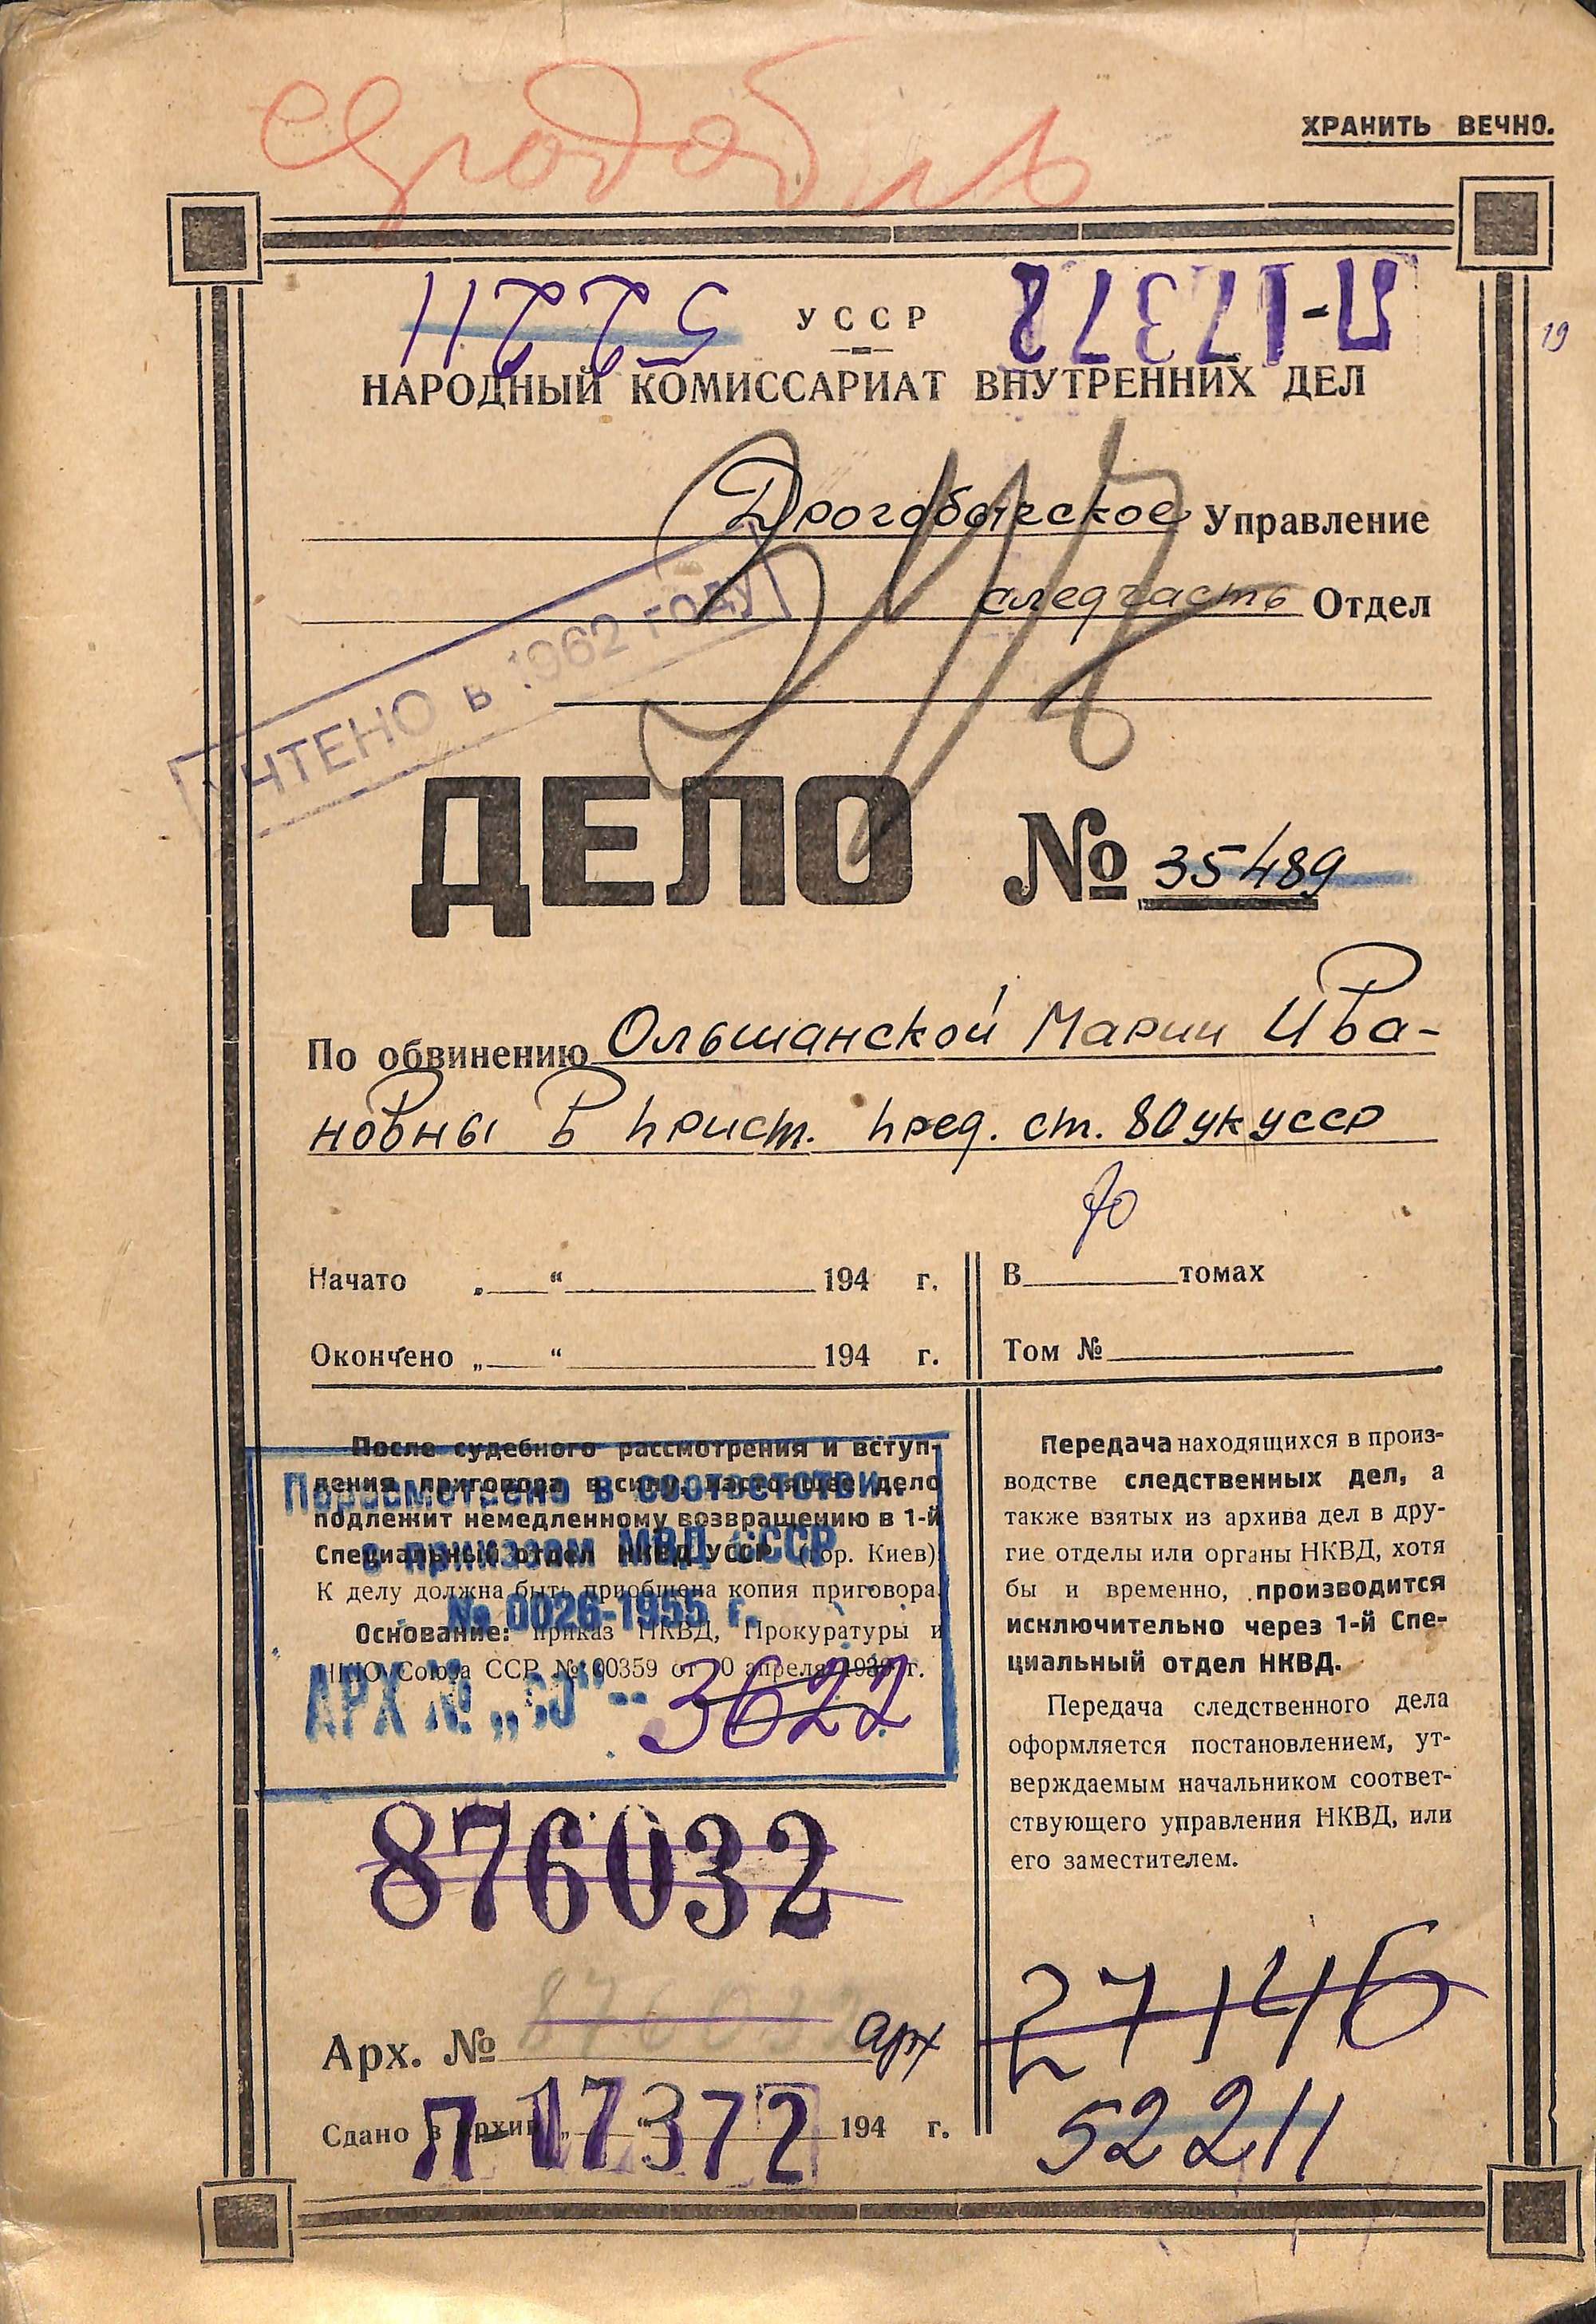 ХРАНИТЬ ВЕЧНО.
52211
П-17372
19
УССР
НАРОДНЫЙ КОМИССАРИАТ ВНУТРЕННИХ ДЕЛ
Дрогобычское Управление
следчасть Отдел
УЧТЕНО в 1962 году
ДЕЛО № 35489
По обвинению Ольшанской Марии Ива-
новны в прист. пред. ст. 80 ук усср
Начато „ “ 194 г.
В томах
Окончено „ “ 194 г.
Том №
После судебного рассмотрения и вступ-
ления приговора в силу, настоящее дело
подлежит немедленному возвращению в 1-й
Специальный отдел НКВД УССР (гор. Киев)
К делу должна быть приобщена копия приговора.
Основание: приказ НКВД, Прокуратуры и
НКЮ Союза ССР № 00359 от апреля г.
Пересмотрено в соответстви
с приказом МВД СССР
№ 0026-1955 г.
АРХ № 3622
Передача находящихся в произ-
водстве следственных дел, а
также взятых из архива дел в дру-
гие отделы или органы НКВД, хотя
бы и временно, производится
исключительно через 1-й Спе-
циальный отдел НКВД.
Передача следственного дела
оформляется постановлением, ут-
верждаемым начальником соответ-
ствующего управления НКВД, или
его заместителем.
876032
27146
Арх. № 876032 арх
52211
Сдано в архив „ “ 194 г.
П-17372